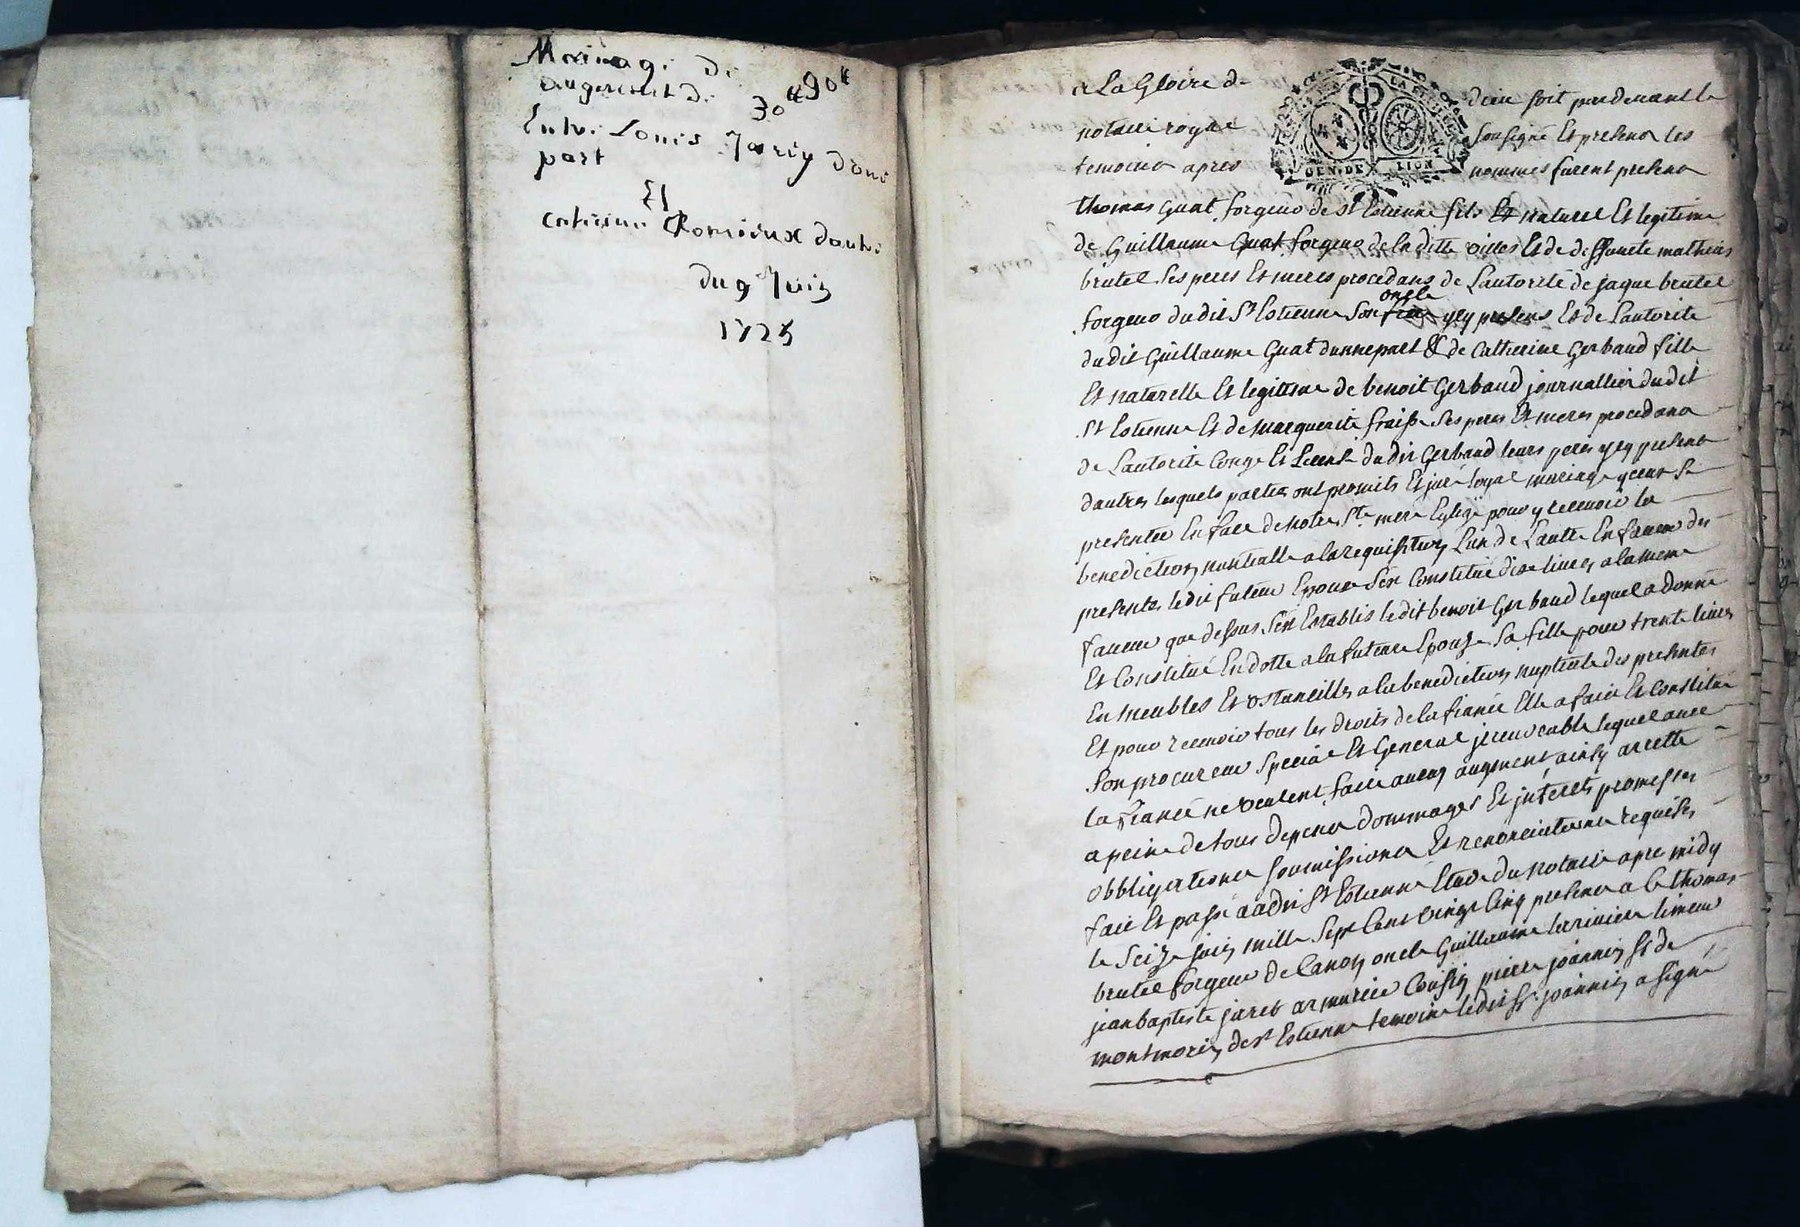 Mariage de 90ᵗᵗ
augment de 30ᵗᵗ
Entre Louis Jarey d'une
part
Et
catherine d'autre
du 9 Juin
1725
a La Gloire de dieu soit pardevant le
notaire royal sousigné Et presens les
temoins apres nommés furent presens
GEN. DE LION
thomas Guat forgeur de st Estienne fils Et naturel Et legitime
de Guillaume Guat forgeur de la ditte ville Et de deffuncte mathias
brutel ses peres Et meres procedans de Lautorité de jaque brutel
forgeur du dit St Estienne Son oncle ycy presens Et de Lautorité
du dit Guillaume Guat dunnepart & de Catherine Gerbaud fille
Et naturelle Et legitime de benoit Gerbaud journallier du dit
St Estienne Et de marguerite fraisse ses peres Et meres procedans
de Lautorité Conge Et Licence du dit Gerbaud leurs peres ycy present
dautres lesquels parties ont promits Et juré loyal mariage yceux se
presenter En face de notre Ste mere Eglize pour y recevoir la
benediction nuptialle a la requisition Lun de Lautre En faveur des
presentes ledit futeur Epoux sest Constitué dix livres a la meme
faveur que dessus sest Establis ledit benoit Gerbaud lequel a donné
Et Constitué En dotte a la future Epouze sa fille pour trente livres
En meubles Et ostancilles a la benediction nuptiale des presentes
Et pour recevoir tous les droits de la fiancée Elle a fait Et Constitué
Son procureur special Et General jrevocable lequel avec
la fiancée ne veulent faire aucun augment ainsy arette
a peine de tous depens dommages Et jnterets promesses
obbligations soumissions Et renonciations requises
fait Et passé audit St Estienne Etude du notaire apre midy
le seize juin mille sept Cent vingt Cinq presens a Ce thomas
brutel forgeur de Canon oncle Guillaume larivière limeur
jean baptiste jareb armurier Cousin pierre joannin sr de
montmorin de st Estienne temoins ledit sr joannin a signé